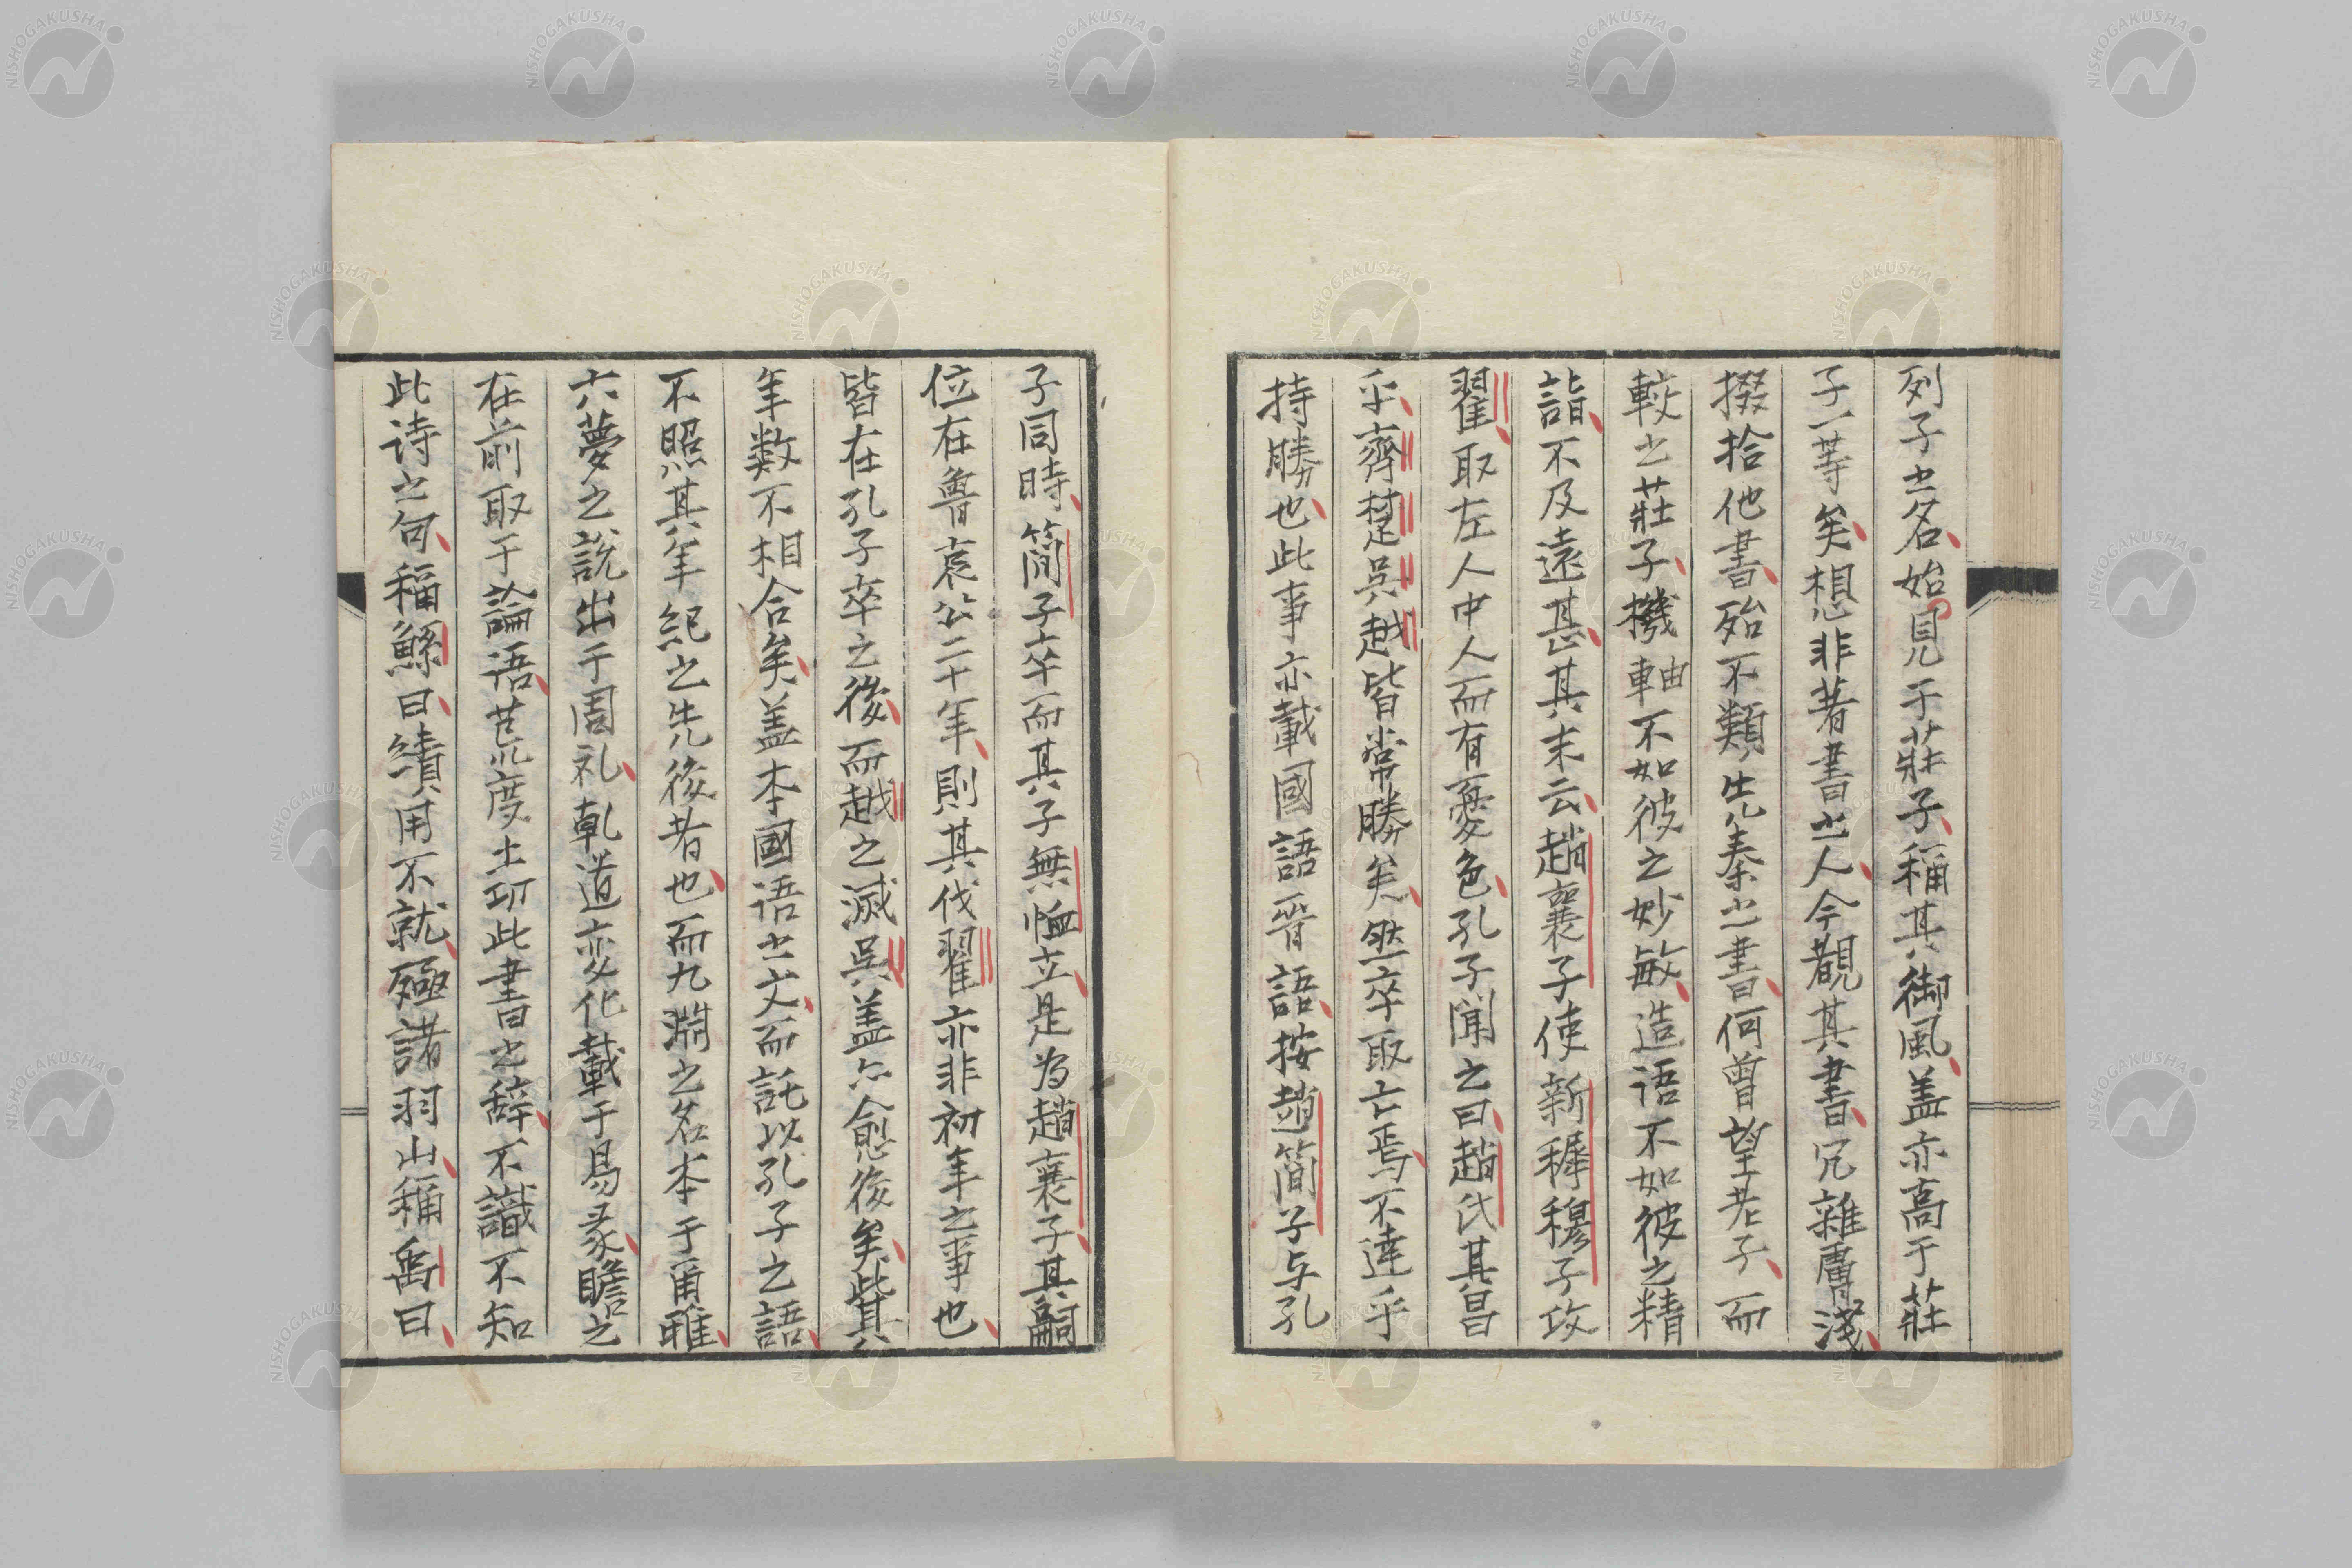 列子之名始見于莊子稱其御風盖亦高于莊
子一等矣想非著書之人今觀其書冗雜膚淺
掇拾他書殆不類先秦之書何曾望老子而
較之莊子機軸不如彼之妙敏造语不如彼之精
詣不及遠甚其末云趙襄子使新穉穆子攻
翟取左人中人而有憂色孔子聞之曰趙氏其昌
乎齊楚吳越皆常勝矣然卒取亡焉不達乎
持勝也此事亦載國語晉語按趙簡子与孔
子同時簡子卒而其子無恤立是为趙襄子其嗣
位在魯哀公二十年則其伐翟亦非初年之事也
皆在孔子卒之後而越之滅吳盖亦愈後矣此其
年数不相合矣盖本國语之文而託以孔子之語
不照其年紀之先後者也而九淵之名本于甬雅
六夢之説出于周礼乹道变化載于易彖瞻之
在前取于論语荒度土功此書之辞不識不知
此诗之句稱鯀曰績用不就殛諸羽山稱禹曰
NISHOGAKUSHA